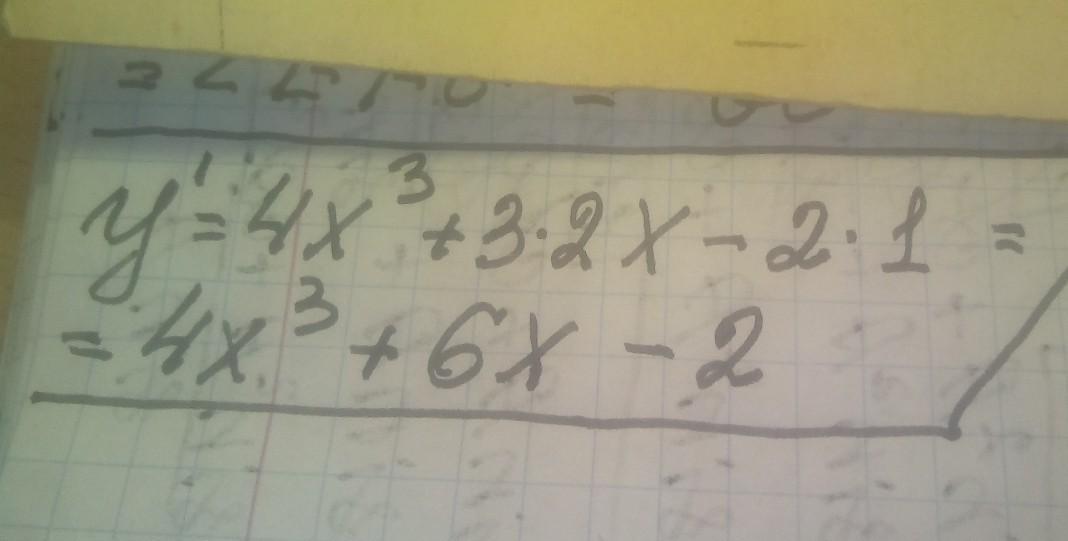 y' = 4x³ + 3·2x - 2·1 =
= 4x³ + 6x - 2